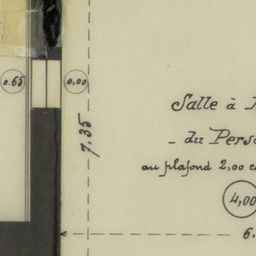 0.65
0.00
7.35
Salle à
- du Perso
au plafond 2,00
4,00
6.